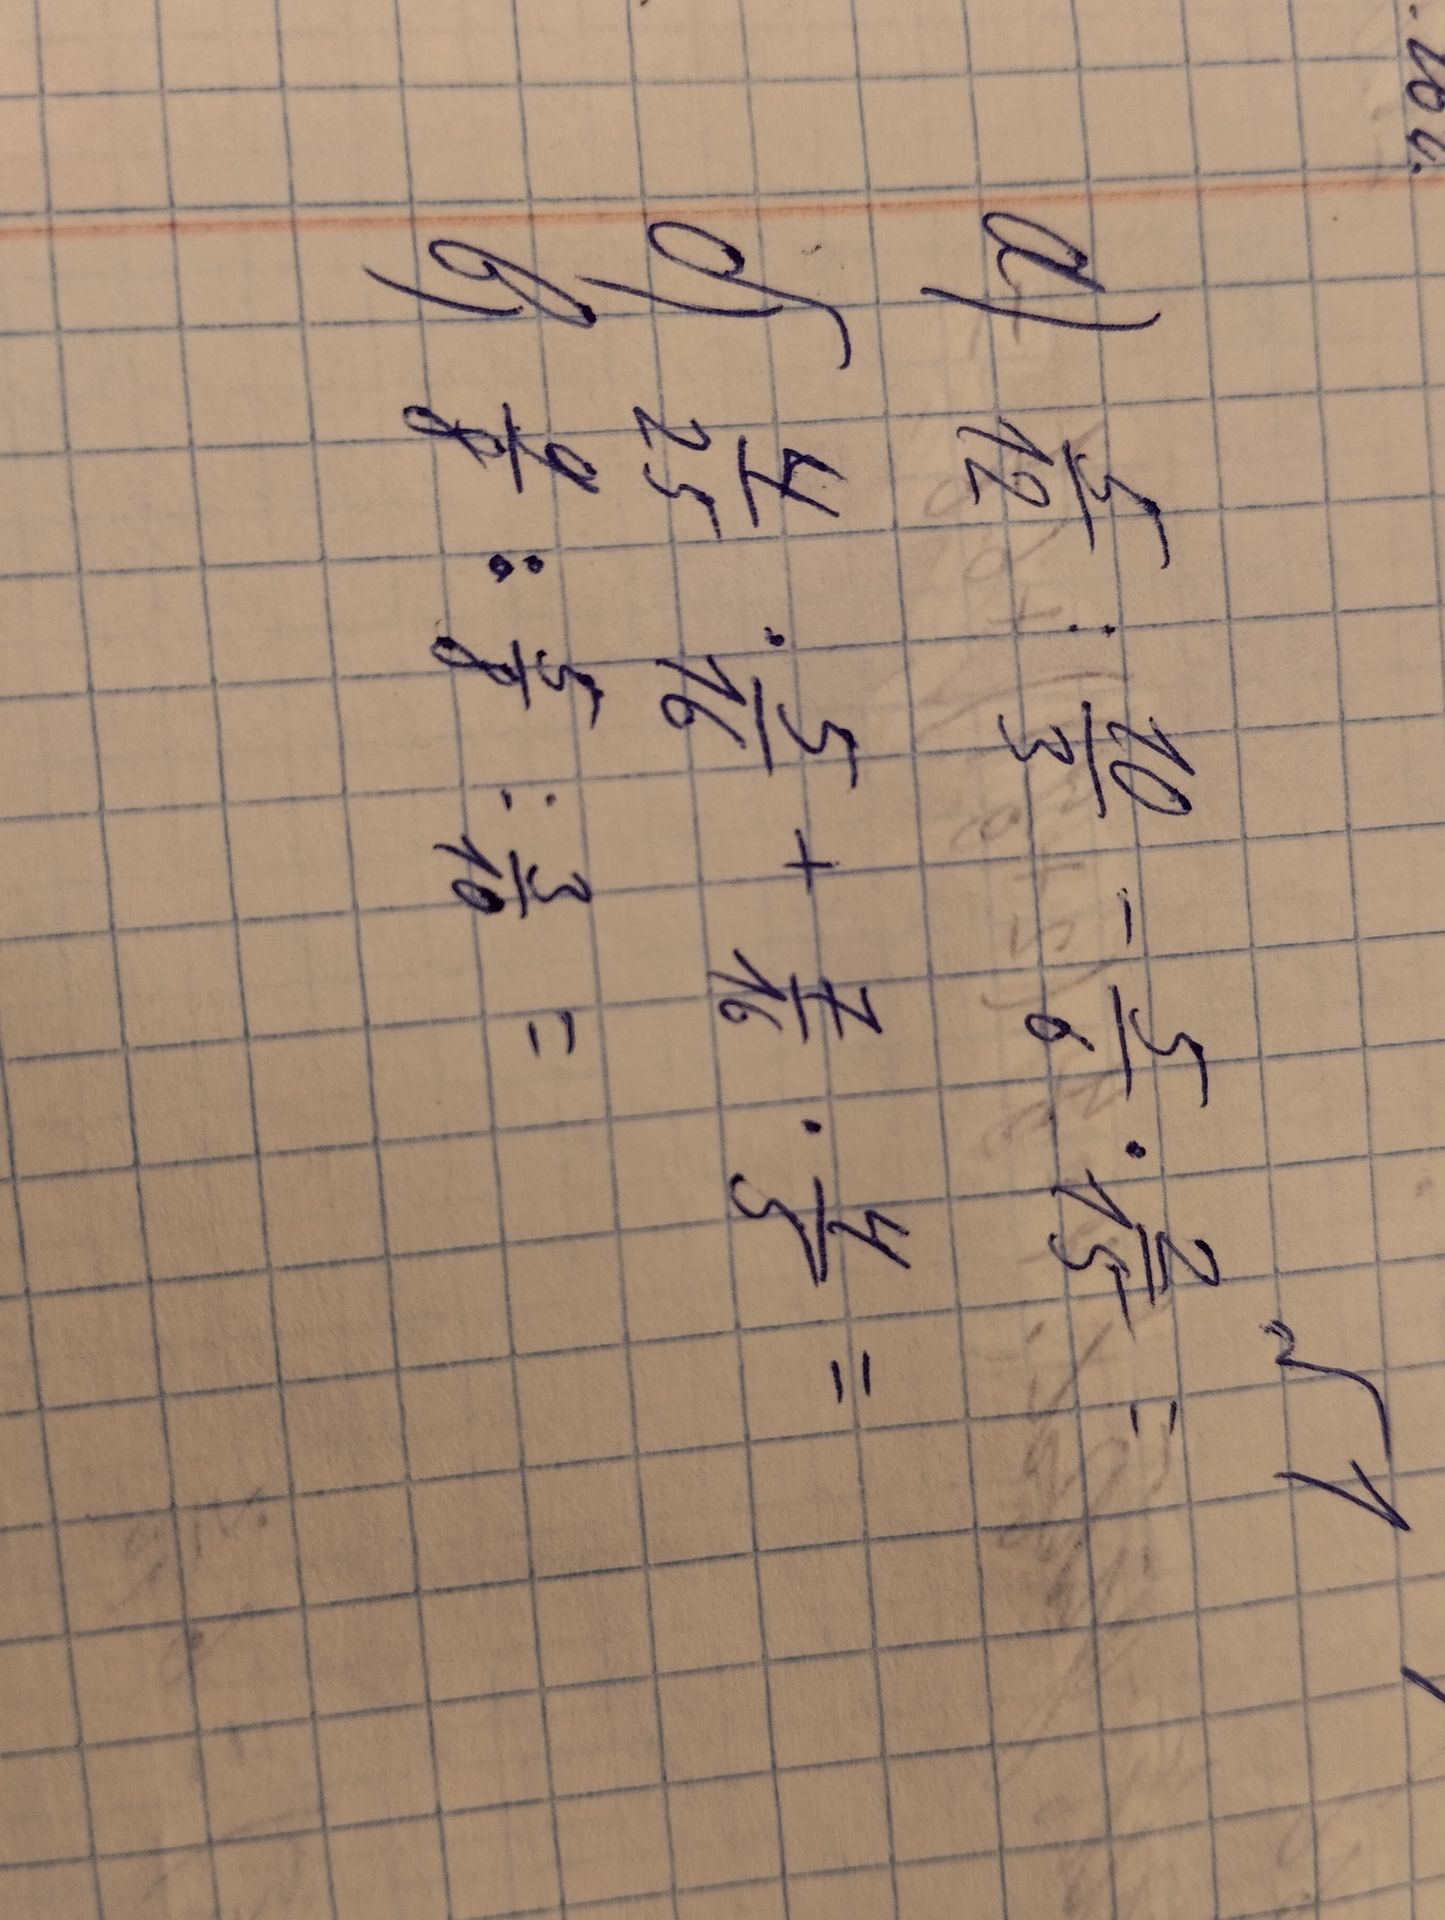 а) 5/12 : 10/3 - 5/6 · 2/15 =
б) 4/25 · 5/16 + 7/16 · 4/5 =
в) : 5/8 : 3/10 =